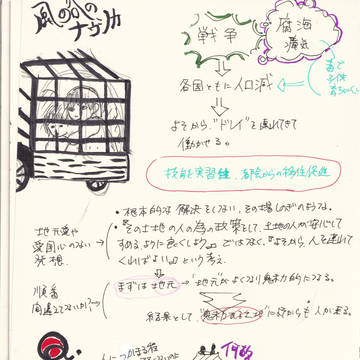 風の谷の
ナウシカ
戦争
腐海
瘴気
毒で
子供
育ちにくい
各国ともに人口減
よそから"ドレイ"を連れてきて
働かせる。
技能実習生、海外からの移住促進
・根本的な解決をしない、その場しのぎのような。
・その土地の人の為の政策をして、土地の人が安心して
すめるように良くしよう。ではなく、よそから、人を連れて
くればよい。という考え。
地元愛や
愛国心のない
発想。
順番
間違えてないか?
まずは地元
"地元"がよくなり魅力的になる。
結果として、"魅力ある土地"に外からも人が来る。
Q.